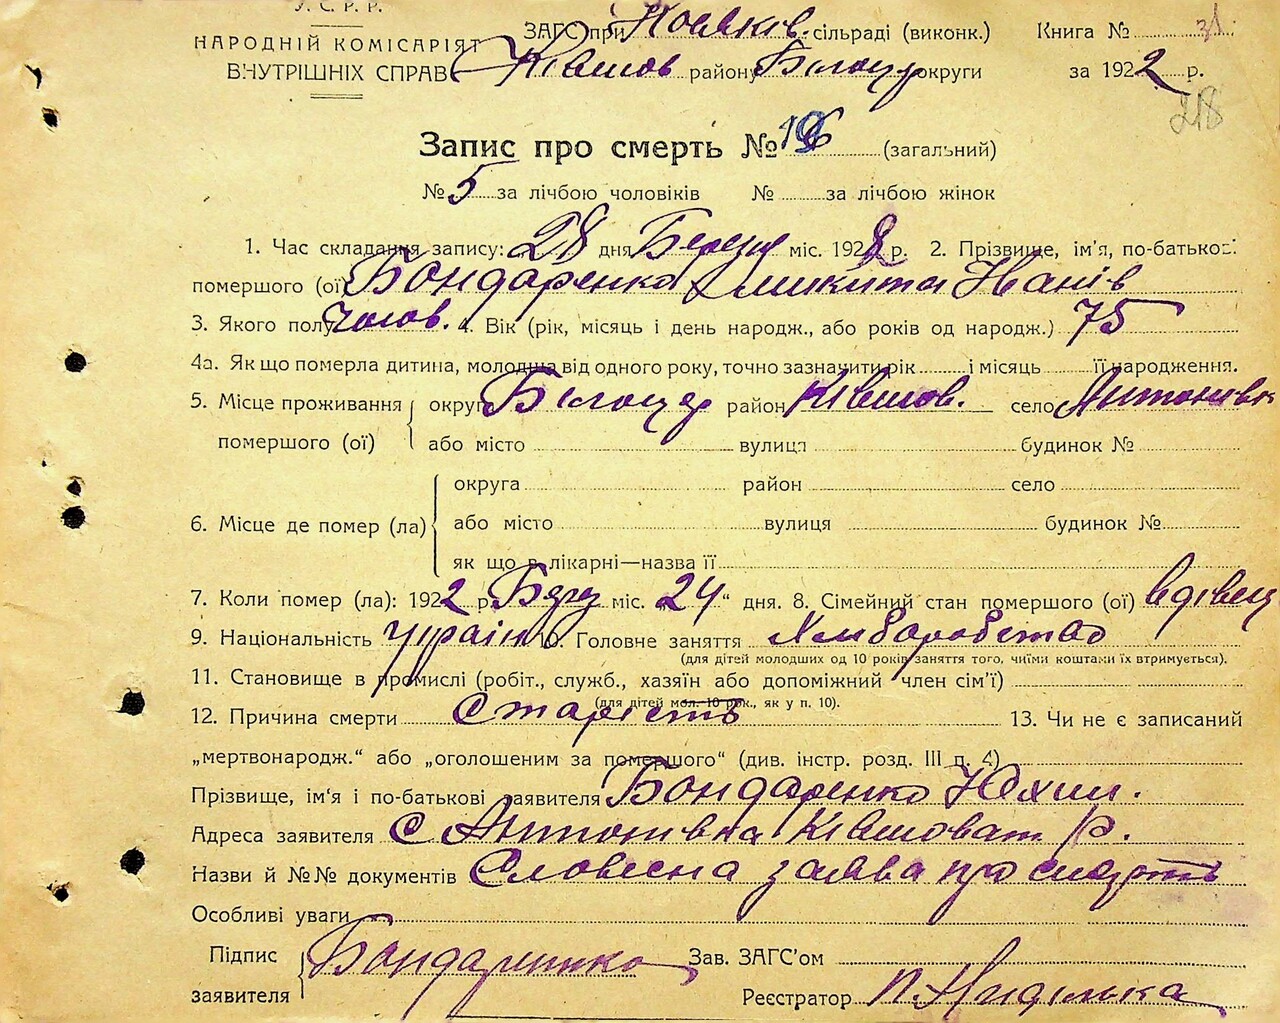 У. С. Р. Р.
НАРОДНІЙ КОМІСАРІЯТ
ВНУТРІШНІХ СПРАВ
ЗАГС при сільраді (виконк.) Книга № 31.
Ківшов району Білоцер округи за 1922 р.
218
Запис про смерть № 196 (загальний)
№ 5 за лічбою чоловіків № за лічбою жінок
1. Час складання запису: 28 дня Березня міс. 1928 р. 2. Прізвище, ім'я, по-батькові
помершого (ої) Бондаренко Микита Іванів
3. Якого полу чолов. 4. Вік (рік, місяць і день народж., або років од народж.) 75
4а. Як що померла дитина, молодша від одного року, точно зазначити рік і місяць її народження.
5. Місце проживання помершого (ої) округа Білоцер район Ківшов. село Антонівка
або місто вулиця будинок №
6. Місце де помер (ла) округа район село
або місто вулиця будинок №
як що в лікарні—назва її
7. Коли помер (ла): 1922 р. Берез міс. „24“ дня. 8. Сімейний стан помершого (ої) вдівец
9. Національність україн 10. Головне заняття Хліборобство
(для дітей молодших од 10 років заняття того, чиїми коштами їх втримується).
11. Становище в промислі (робіт., служб., хазяїн або допоміжний член сім'ї)
(для дітей мол. 10 рок., як у п. 10).
12. Причина смерти Старість 13. Чи не є записаний
„мертвонародж.“ або „оголошеним за помершого“ (див. інстр. розд. III п. 4)
Прізвище, ім'я і по-батькові заявителя Бондаренко Юхим.
Адреса заявителя с Антонівка Ківшоват. р.
Назви й №№ документів Словесна заява про смерть
Особливі уваги
Підпис заявителя Бондаренко Зав. ЗАГС'ом
Реєстратор